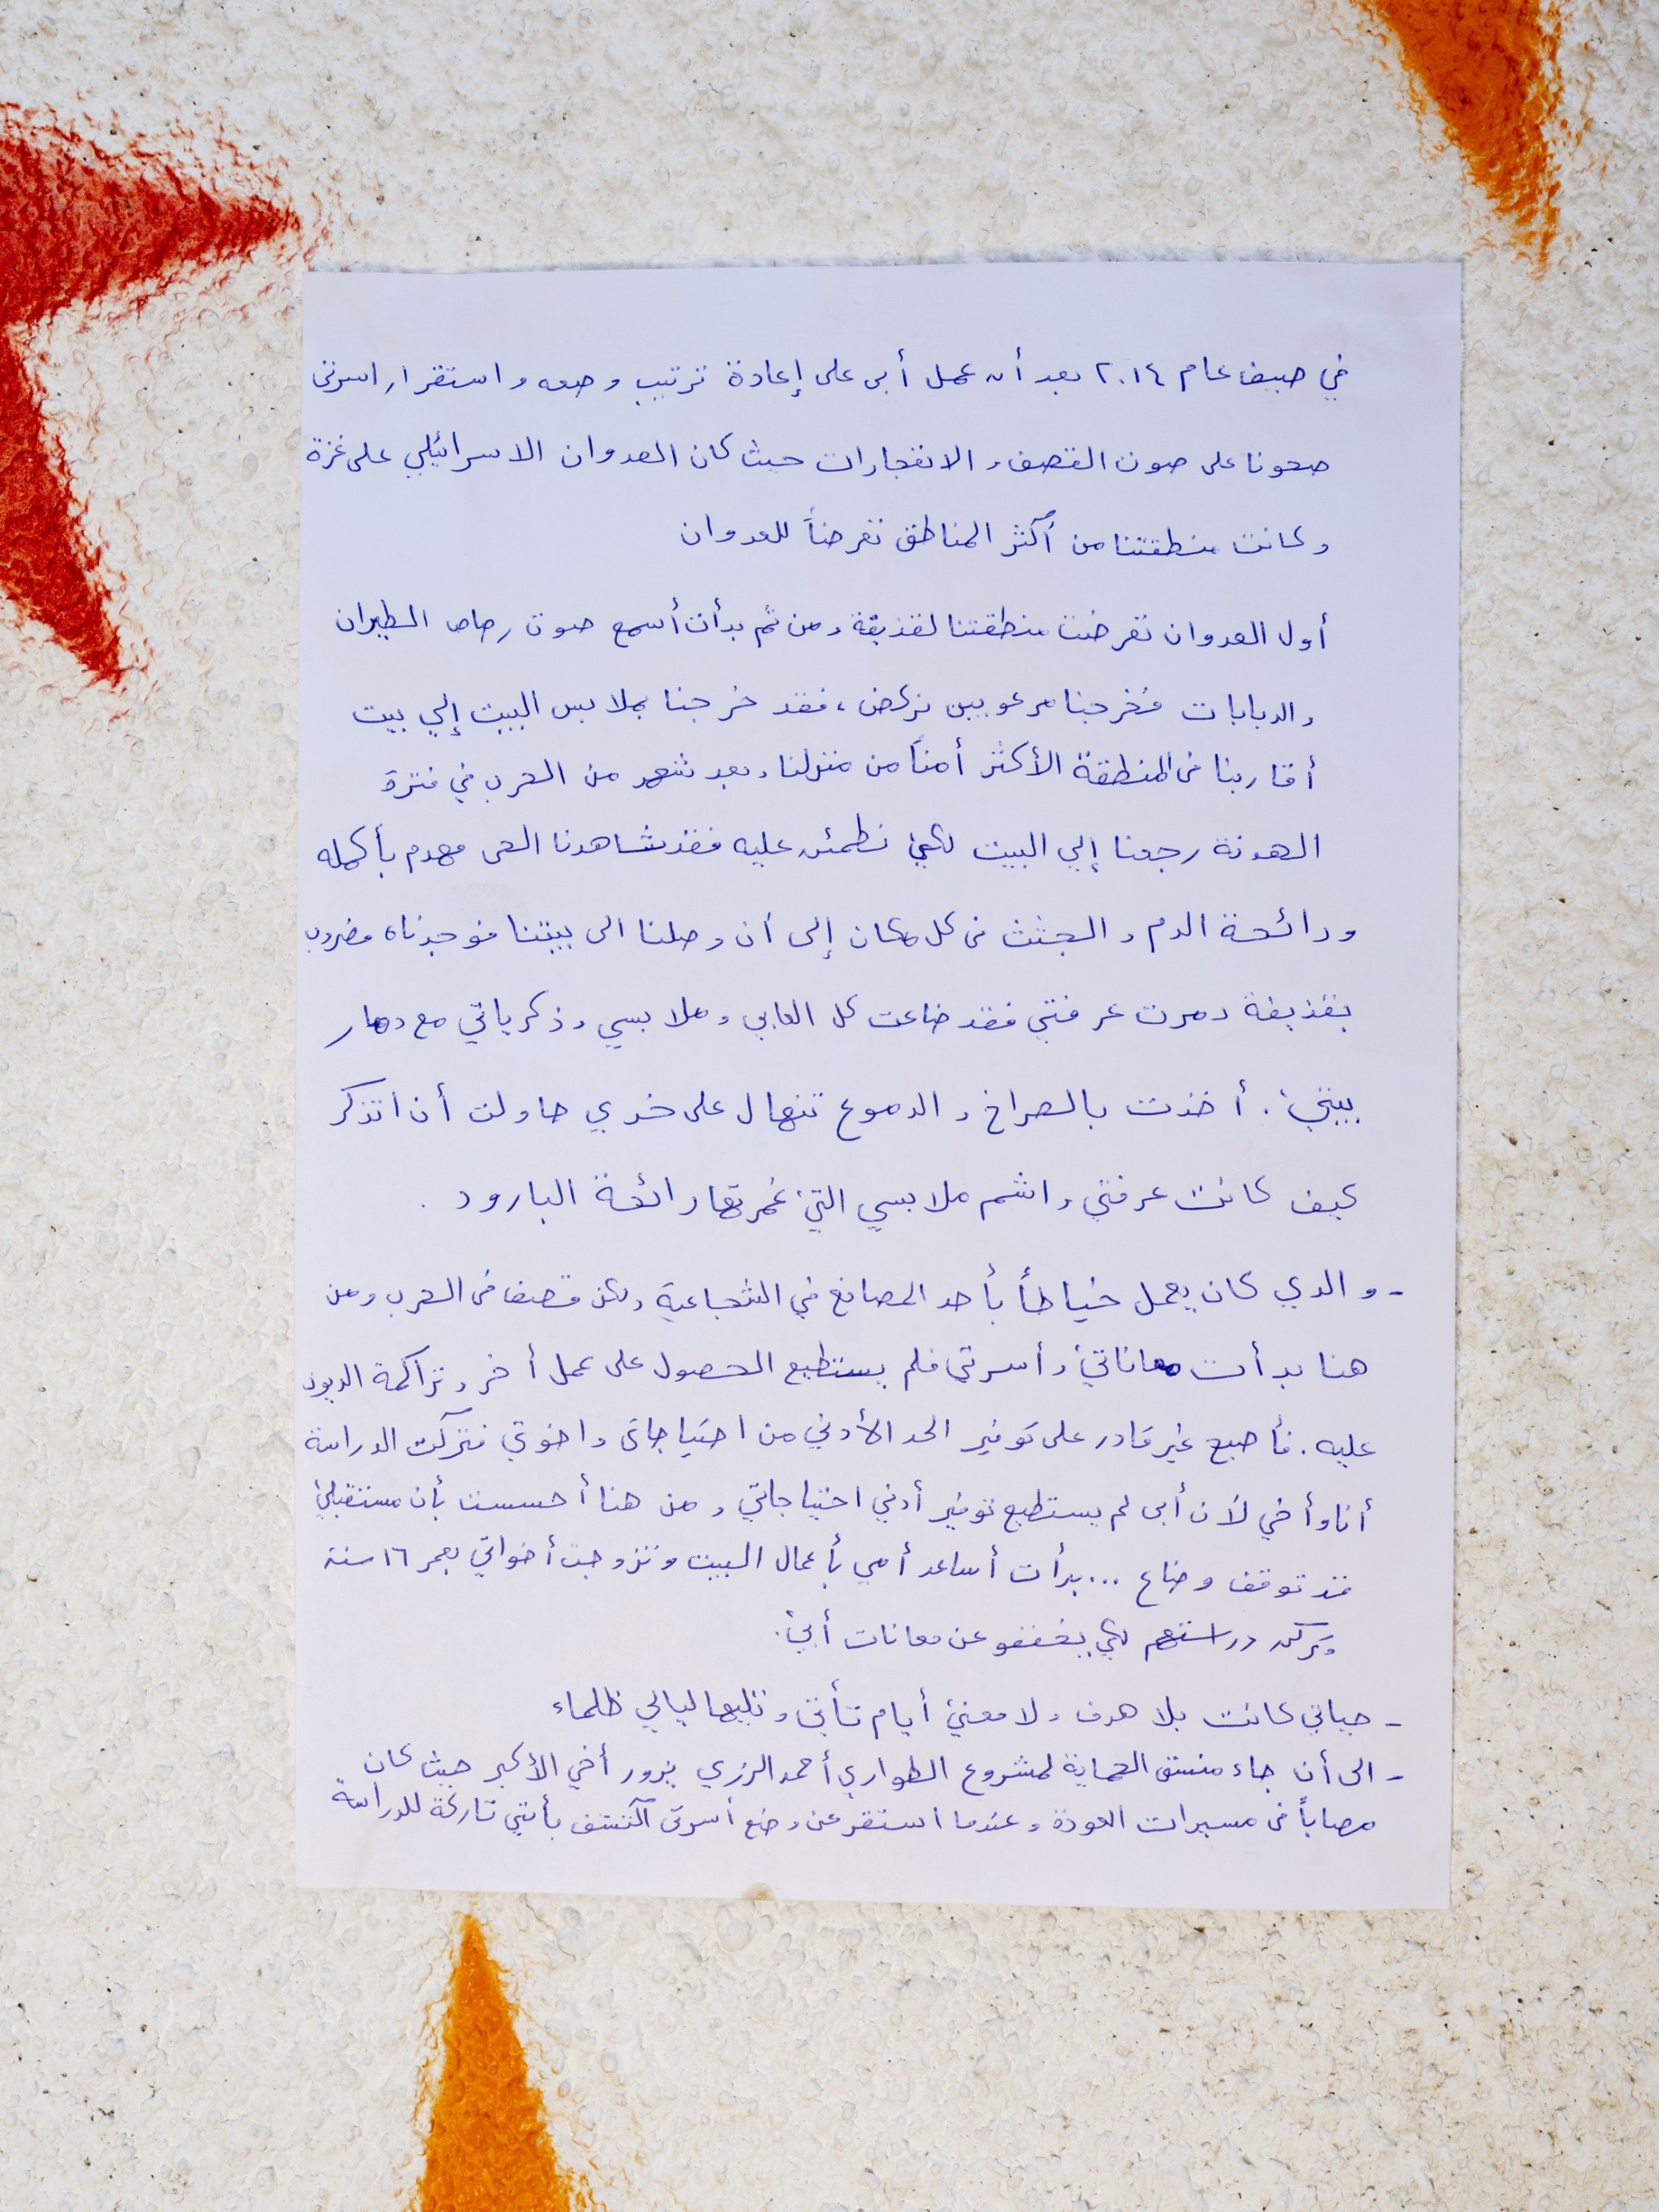 في صيف عام ٢٠١٤ بعد أن عمل أبى على إعادة ترتيب وضعه واستقرار اسرتى
صحونا على صوت القصف والانفجارات حيث كان العدوان الاسرائيلي على غزة
وكانت منطقتنا من أكثر المناطق تعرضاً للعدوان
أول العدوان تعرضت منطقتنا لقذيقة ومن ثم بدأت أسمع صوت رصاص الطيران
والدبابات فخرجنا مرعوبين نركض، فقد خرجنا بملابس البيت إلي بيت
أقاربنا فى المنطقة الأكثر أمناً من منزلنا وبعد شهر من الحرب في فترة
الهدنة رجعنا إلي البيت لكي نطمئن عليه فقد شاهدنا الحى مهدم بأكمله
ورائحة الدم والجثث فى كل مكان إلى أن وصلنا الى بيتنا فوجدناه مضروب
بقذيفة دمرت غرفتي فقد ضاعت كل العابي وملابسي وذكرياتي مع دمار
بيتي. أخذت بالصراخ والدموع تنهال على خدي حاولت أن اتذكر
كيف كانت غرفتي واشم ملابسي التي غمرتها رائحة البارود.
- والدي كان يعمل خياطاً بأحد المصانع في الشجاعية ولكن قصف فى الحرب ومن
هنا بدأت معاناتي وأسرتي فلم يستطيع الحصول على عمل أخر وتراكمة الديون
عليه. فأصبح غير قادر على توفير الحد الأدني من احتياجاتى واخوتي فتركت الدراسة
أنا وأخي لأن أبى لم يستطيع توفير أدني احتياجاتي ومن هنا أحسست بأن مستقبلي
قد توقف وضاع ... بدأت أساعد أمي بأعمال البيت وتزوجت أخواتي بعمر ١٦ سنة
وتركن دراستهم لكي يخففو عن معانات أبي.
- حياتي كانت بلا هدف ولا معني أيام تأتى وتليها ليالي ظلماء
- الى أن جاء منسق الحماية لمشروع الطواري أحمد الرزي يزور أخي الأكبر حيث كان
مصاباً فى مسيرات العودة وعندما استفسر عن وضع أسرتى اكتشف بأنني تاركة للدراسة